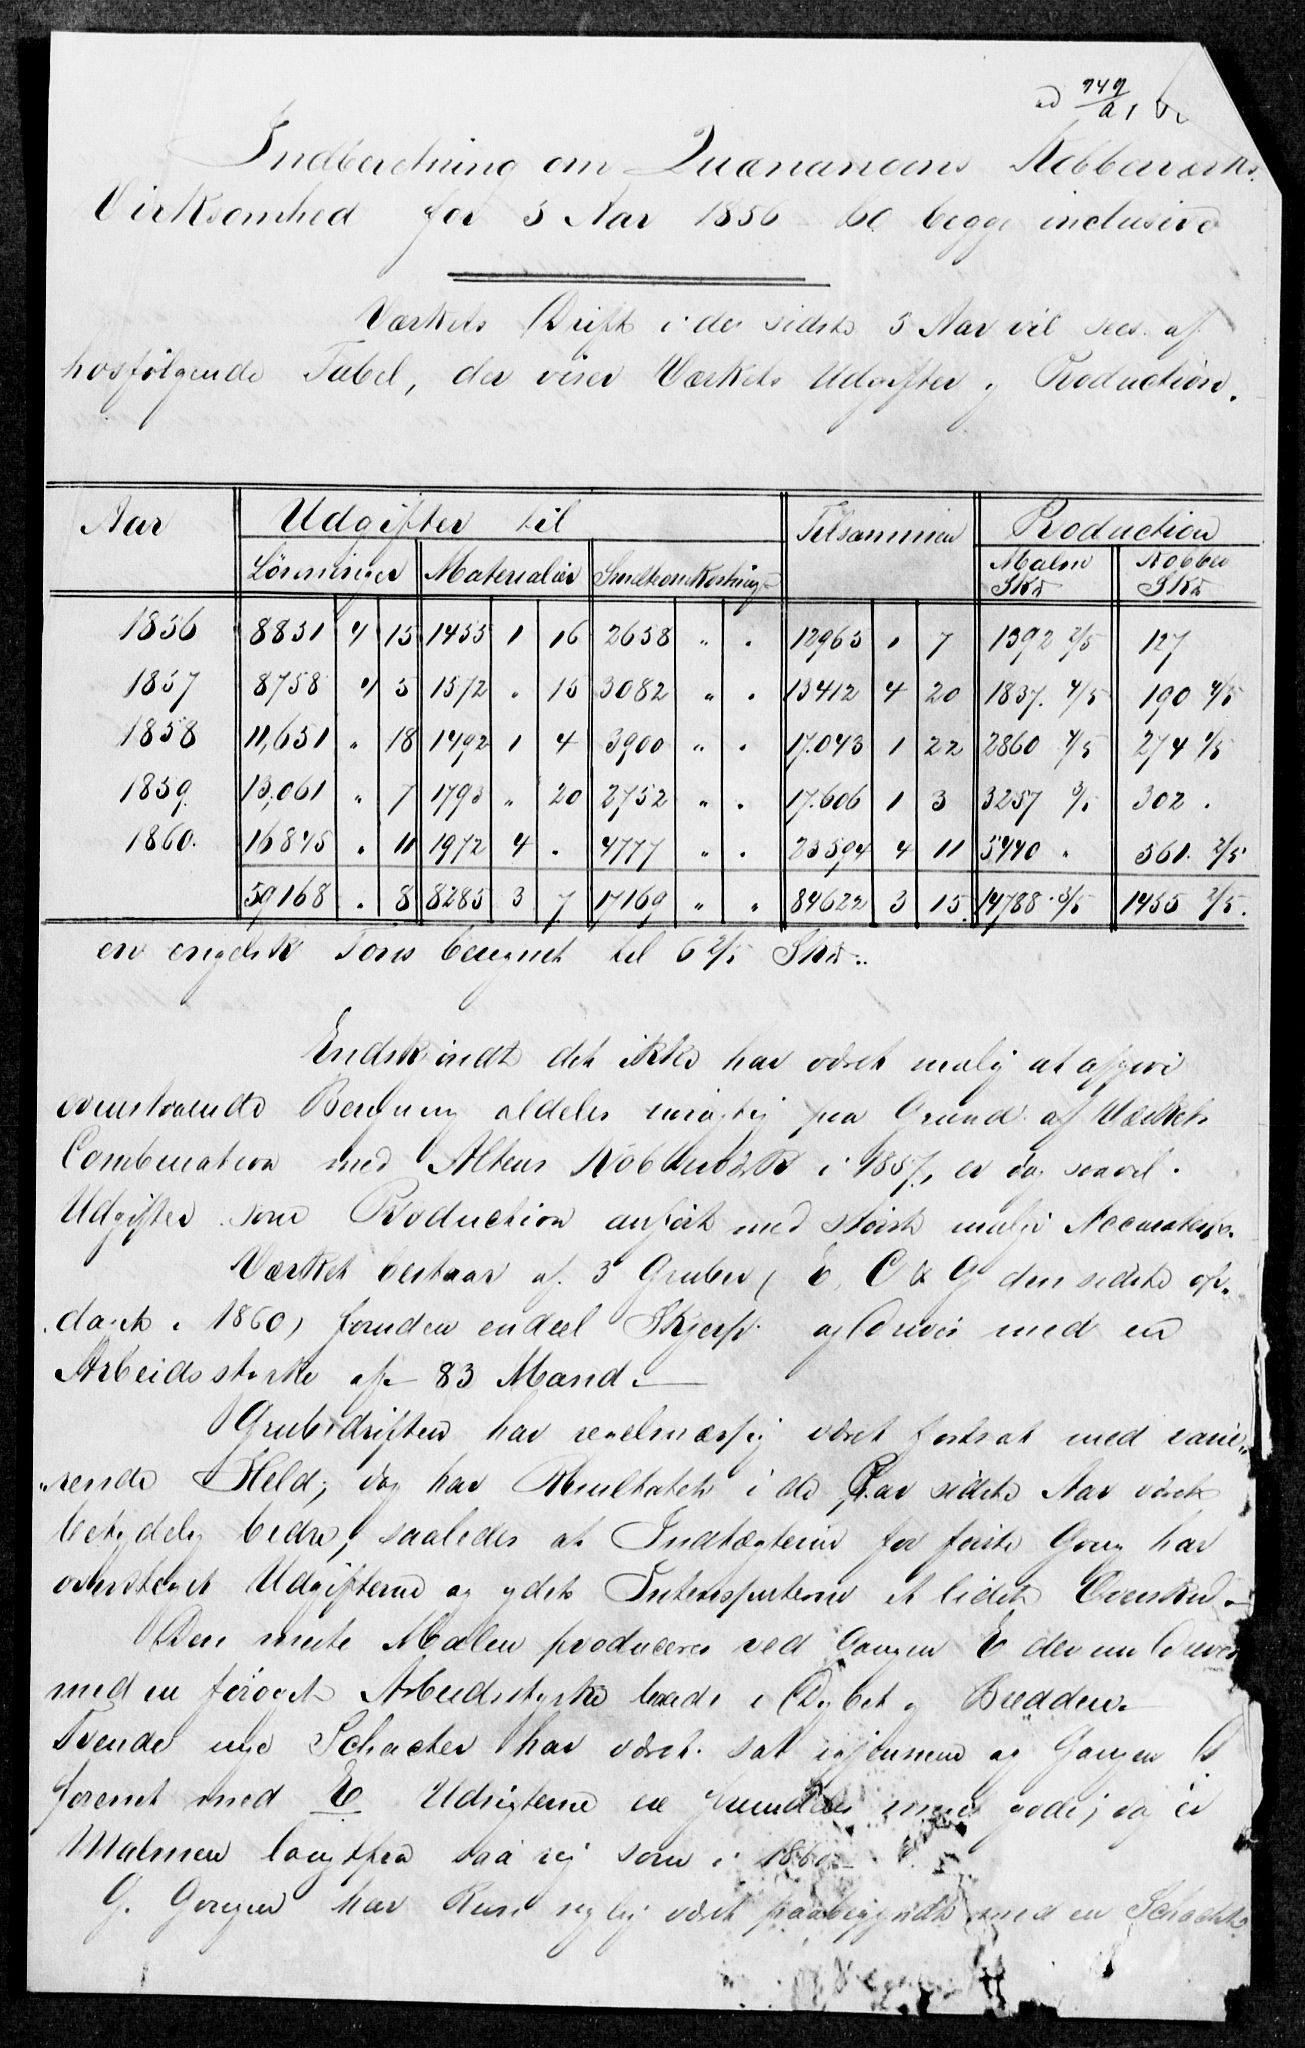 ad 749/a 1
Indberetning om Quænangens Kobberværks
Virksomhed for 5 Aar 1856 - 60 begge inclusive
Værkets Drift i de sidste 5 Aar vil sees af
hosfølgende Tabel, der viser Værkets Udgifter og Production.
Aar Udgifter til Tilsammen Production
Lønninger Materialier Smelteomkostning Malm Kobber
SK℔ SK℔
1856 8851 4 15 1455 1 16 2658 " " 12965 1 7 1392 2/5 127
1857 8758 4 5 1572 " 15 3082 " " 13412 4 20 1837. 4/5 190 4/5
1858 11,651 " 18 1492 1 4 3900 " " 17.043 1 22 2860 4/5 274 1/5
1859. 13,061 " 7 1793 " 20 2752 " " 17.606 1 3 3257 3/5 302 .
1860. 16845 " 11 1972 4 " 4777 " " 23594 4 11 5440 " 561. 2/5
59168 " 8 8285 3 7 17169 " " 84622 3 15. 14788. 3/5 1455 2/5.
en engelsk Tons beregnet til 6 2/5 SK℔.
Endskiøndt det ikke har været mulig at afgive
ovenstaaende Beregning aldeles nøiagtig paa Grund af Værkets
Combination med Altens Kobberværk i 1857, er dog saavel
Udgifter som Production anført med størst mulige Accuratesse.
Værket bestaar af 3 Gruber, (E, C & G den sidste op-
daget i 1860) foruden endeel Skjerp og drives med en
Arbeidsstyrke af 83 Mand.
Grubedriften har regelmæssig været fortsat med varie-
"rende Held; dog har Resultatet i de Par sidste Aar været
betydelig bedre, saaledes at Indtægterne for første Gang har
oversteget Udgifterne og ydet Interessenterne et lidet Overskud.
Den meste Malm produceres ved Gangen E der nu drives
med en forøget Arbeidsstyrke baade i Dybet og Bredden.
Tvende nye Schacter har været sat igjennem og Gangen G
forenet med E Udsigterne ere fremdeles meget gode; dog er
Malmen langtfra saa rig som i 1860.
G. Gangen har kun nylig været paabegyndt med en Schackt